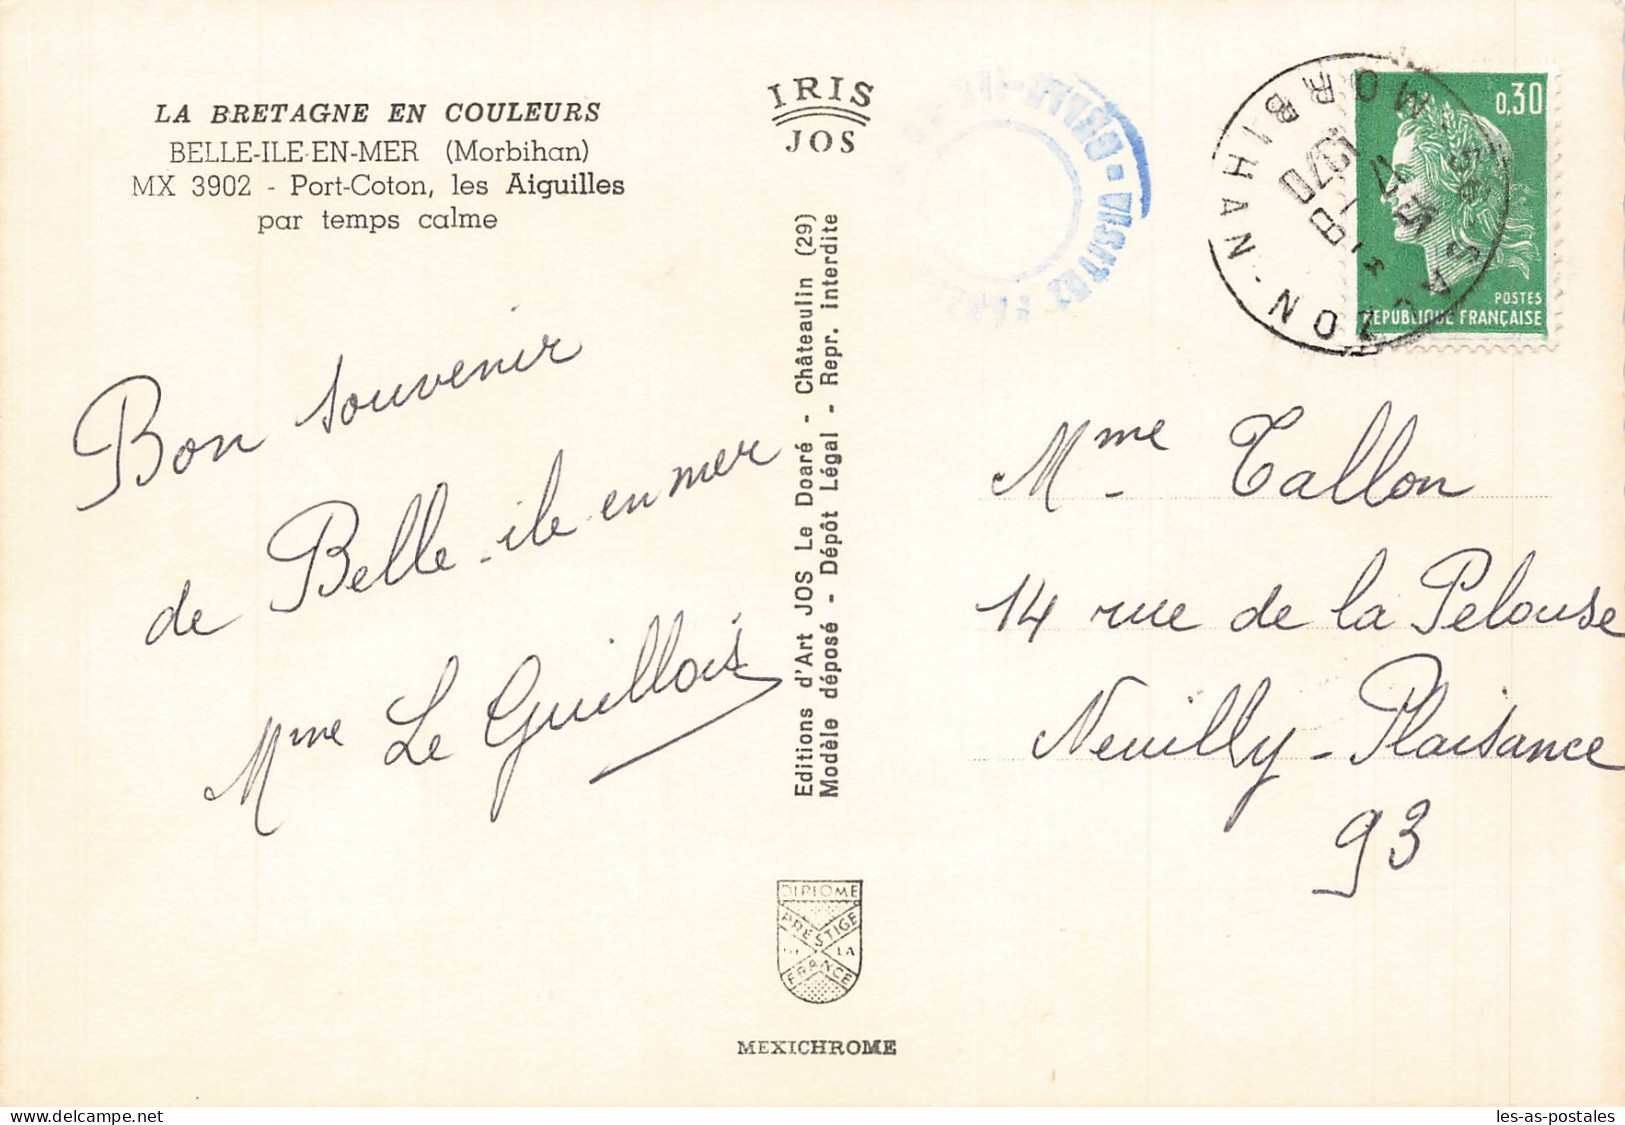 LA BRETAGNE EN COULEURS
BELLE-ILE-EN-MER (Morbihan)
MX 3902 - Port-Coton, les Aiguilles
par temps calme
IRIS
JOS
Bon souvenir
de Belle-ile en mer
Mme Le Guillois
Editions d'Art JOS Le Doaré - Châteaulin (29)
Modèle déposé - Dépôt Légal - Repr. interdite
DIPLOME
PRESTIGE
LA
FRANCE
MEXICHROME
VISITEZ
SARZON - MORBIHAN
1970
0,30
POSTES
REPUBLIQUE FRANÇAISE
Mme Tallon
14 rue de la Pelouse
Neuilly-Plaisance
93
les-as-postales
delcampe.net